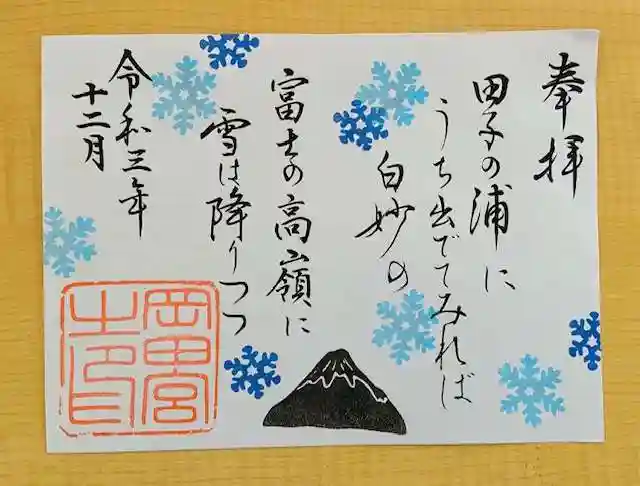 奉拝
田子の浦に
うち出でてみれば
白妙の
富士の高嶺に
雪は降りつつ
令和三年
十二月
岡田宮
之印